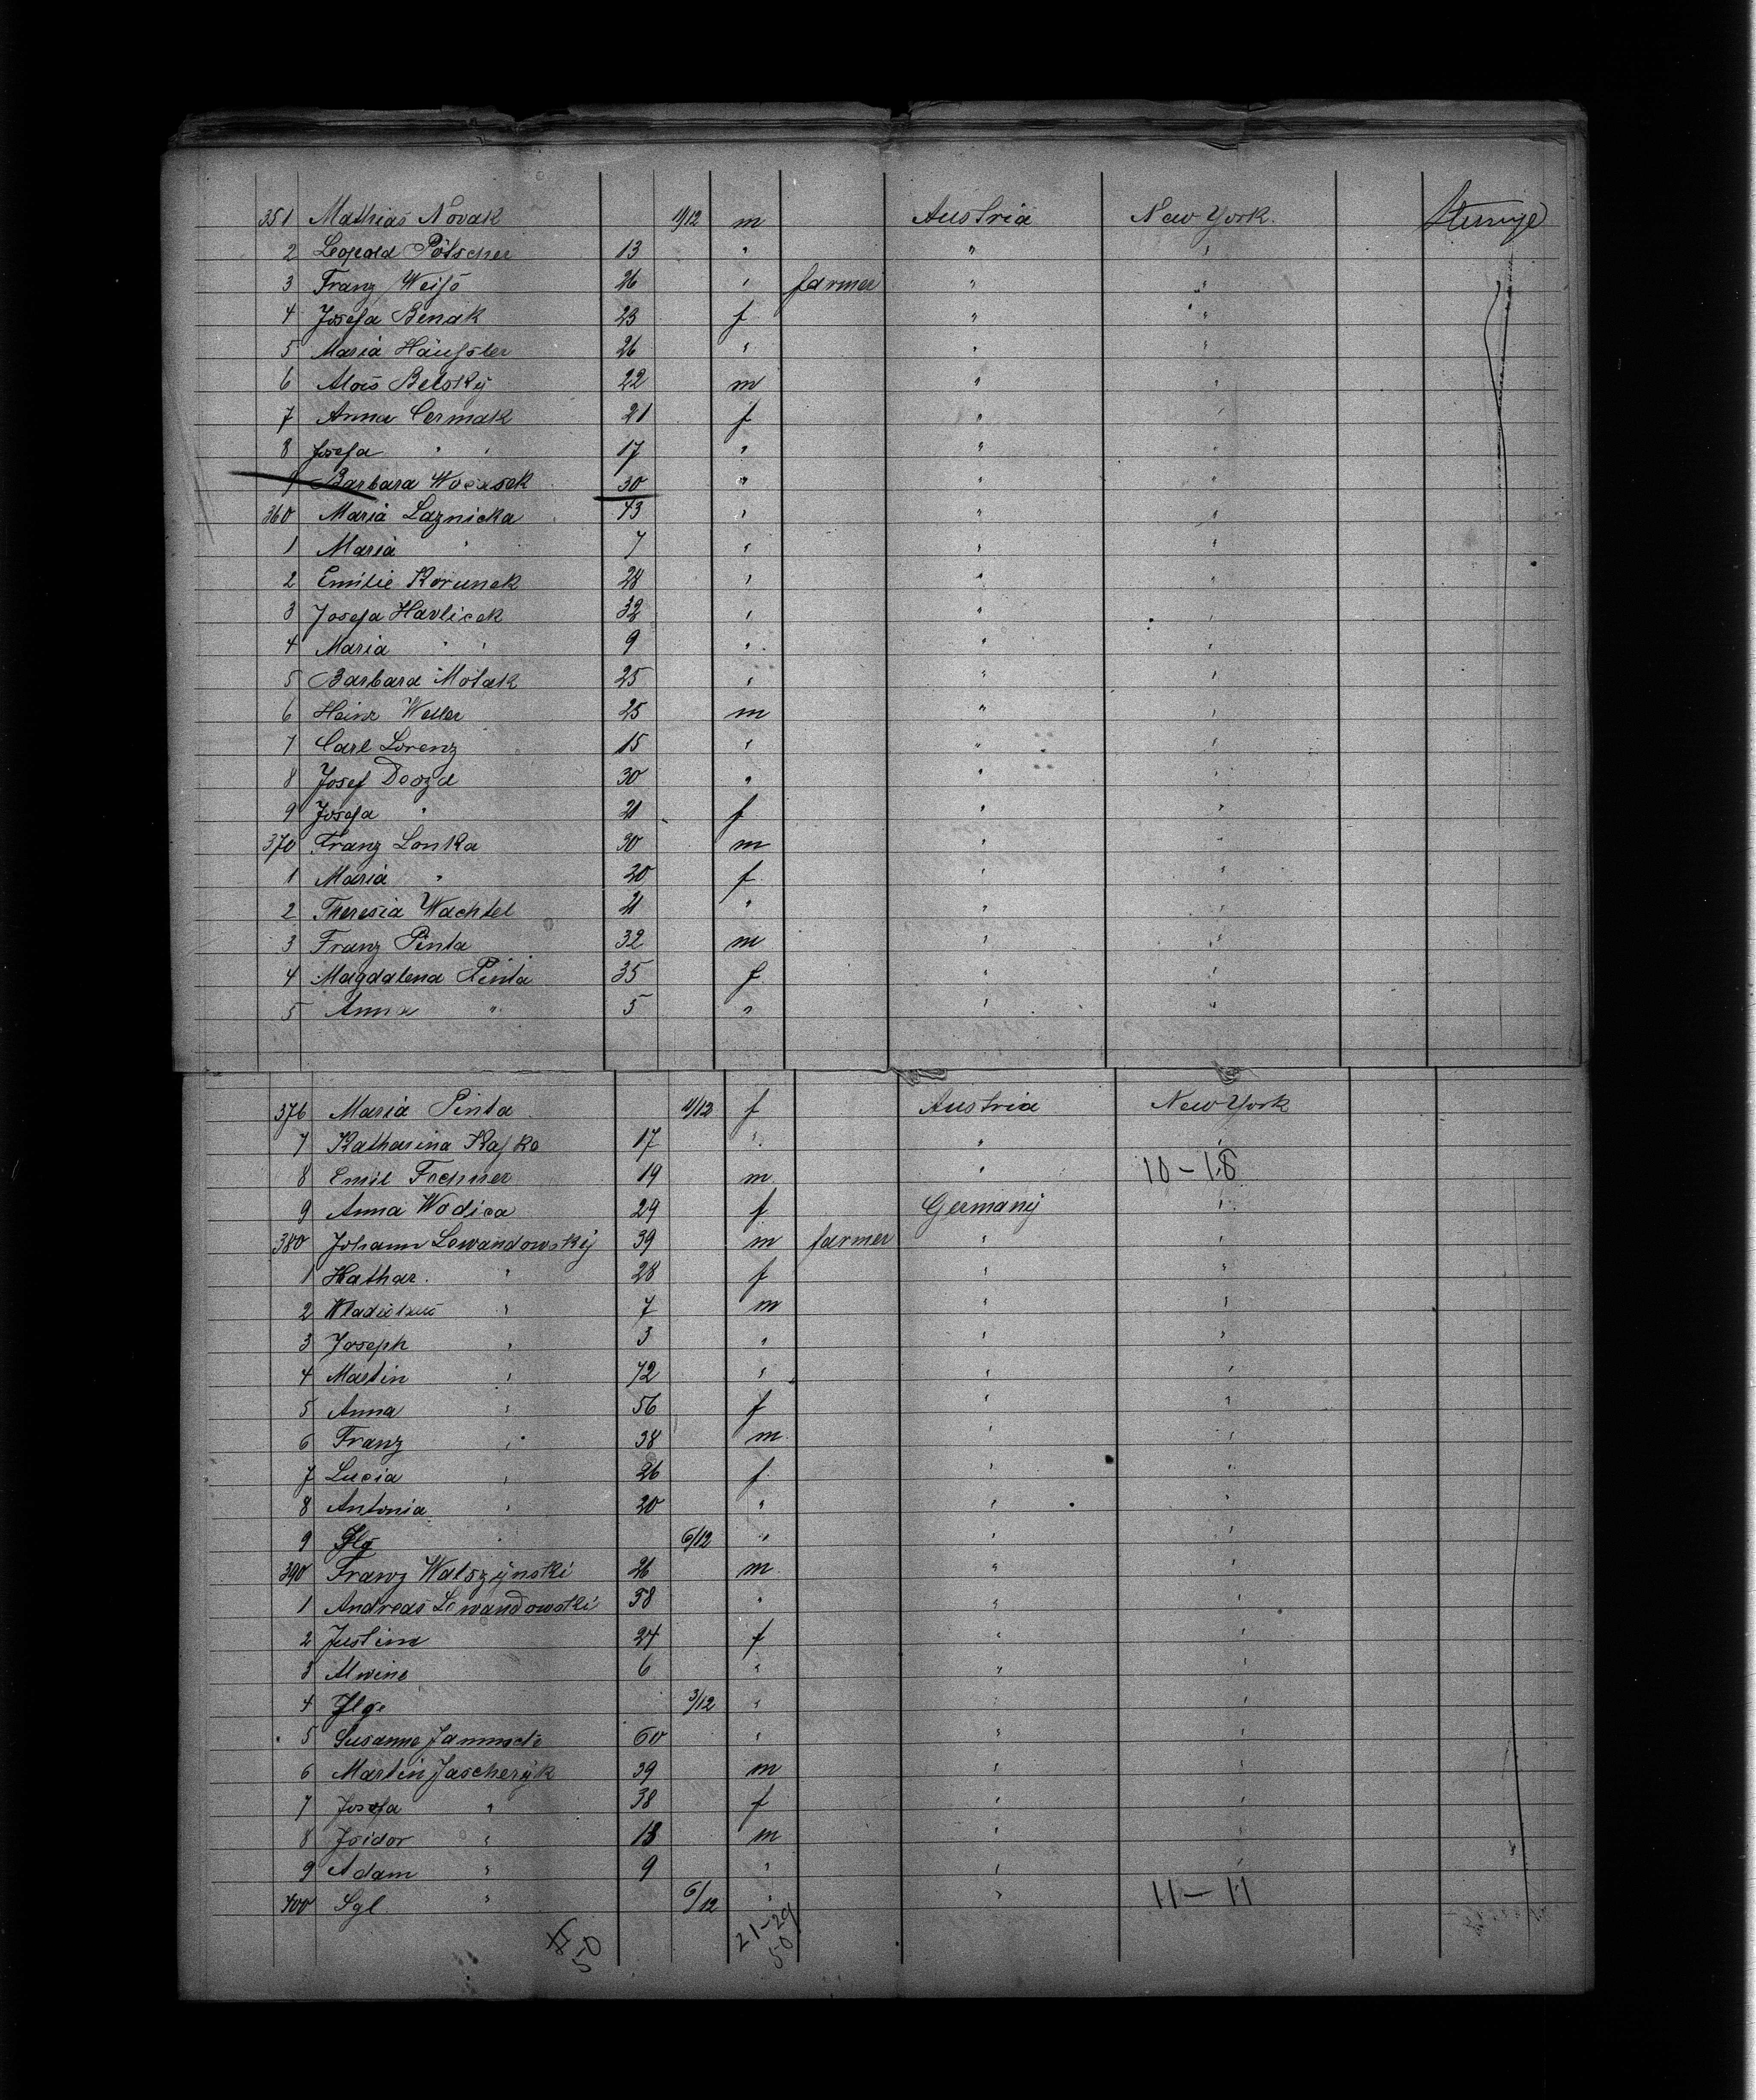 351 Mathias Novak 11/12 m Austria New York.
2 Leopold Pötscher 13 " " "
3 Franz Weiss 26 " farmer " "
4 Josefa Benak 23 f " "
5 Maria Häussler 26 " " "
6 Alois Belsky 22 m " "
7 Anna Cermak 21 f " "
8 Josefa " " 17 " " "
9 Barbara Wocasek 30 " " "
360 Maria Laznicka 43 " " "
1 Maria " 7 " " "
2 Emilie Korunek 28 " " "
3 Josefa Havlicek 32 " " "
4 Maria " " 9 " " "
5 Barbara Motak 25 " " "
6 Heinr Weller 25 m " "
7 Carl Lorenz 15 " " "
8 Josef Drozd 30 " " "
9 Josefa " 21 f " "
370 Franz Lonka 30 m " "
1 Maria " 20 f " "
2 Theresia Wachtel 21 " " "
3 Franz Pinta 32 m " "
4 Magdalena Pinta 35 f " "
5 Anna " 5 " " "
376 Maria Pinta 11/12 f Austria New York
7 Katharina Kafka 17 " " "
8 Emil 19 m " 10-18
9 Anna Wodica 29 f Germany "
380 Johann Lewandowsky 39 m farmer " "
1 Kathar. " 28 f " "
2 " 7 m " "
3 Joseph " 3 " " "
4 Martin " 72 " " "
5 Anna " 56 f " "
6 Franz " 38 m " "
7 Lucia " 26 f " "
8 Antonia " 20 " " "
9 " 6/12 " " "
390 Franz Walszynski 26 m " "
1 Andreas Lewandowski 38 " " "
2 Justine 24 f " "
3 Alwine 6 " " "
4 3/12 " " "
5 Susanne 60 " " "
6 Martin Jascheryk 39 m " "
7 Josefa " 38 f " "
8 Isidor " 13 m " "
9 Adam " 9 " " "
400 Sgl " 6/12 " " 11-11
50 21-29
50